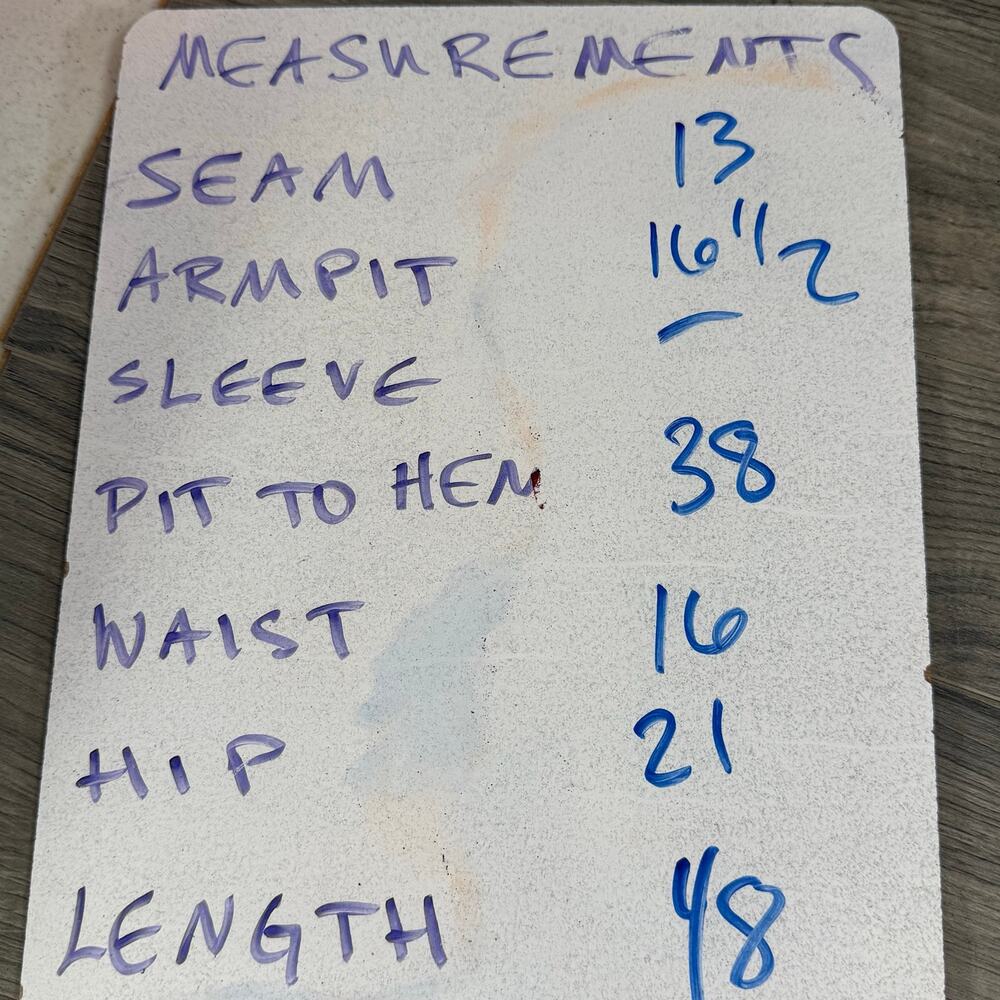 MEASUREMENTS
SEAM 13
ARMPIT 16 1/2
SLEEVE —
PIT TO HEM 38
WAIST 16
HIP 21
LENGTH 48